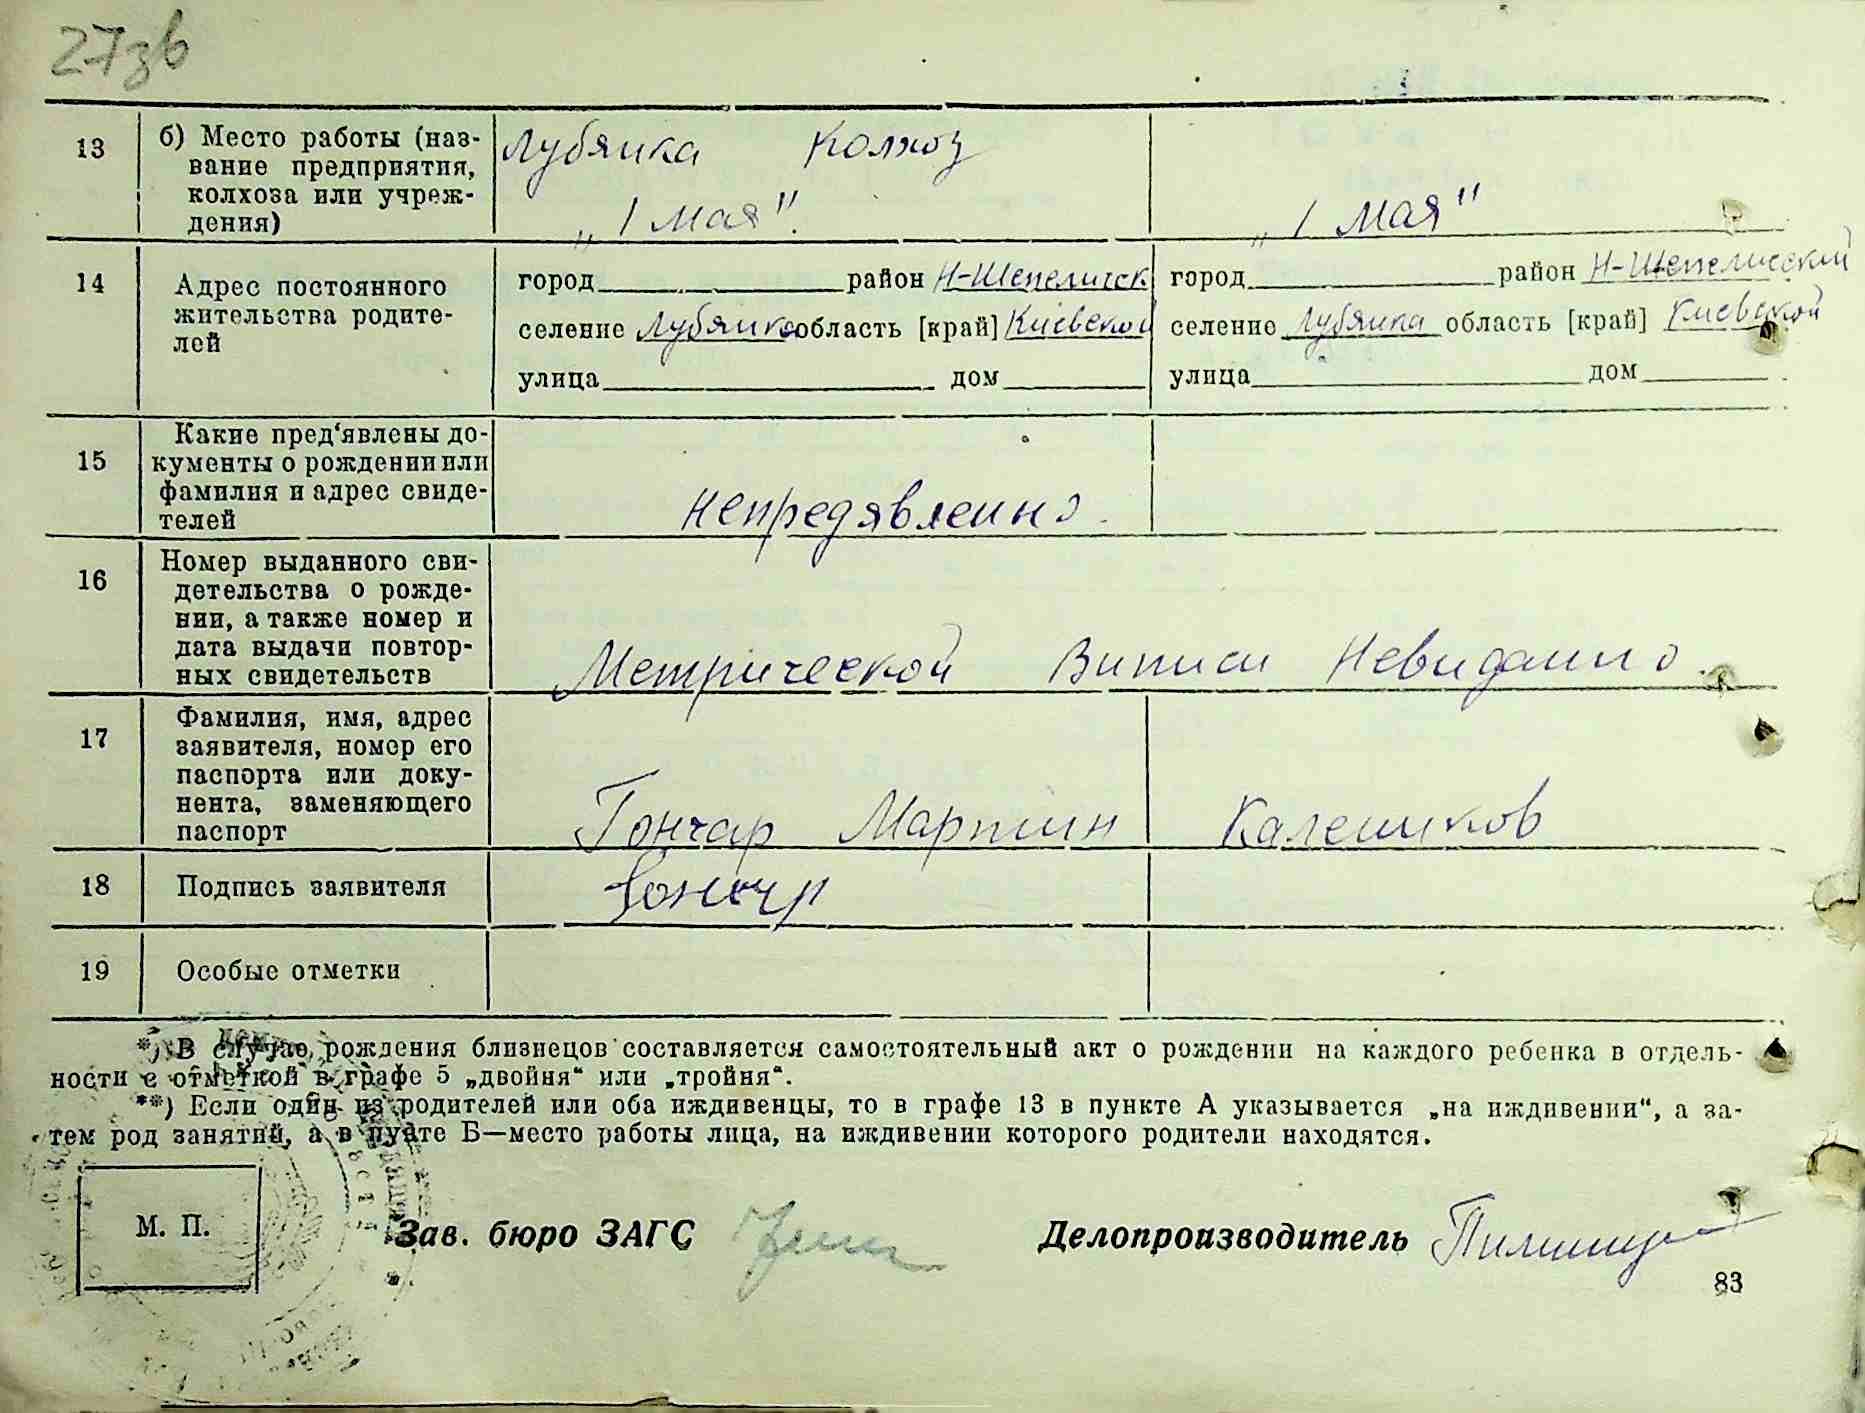 27зв
13
б) Место работы (наз-
вание предприятия,
колхоза или учреж-
дения)
Лубянка Колхоз
„1 мая".
„1 мая"
14
Адрес постоянного
жительства родите-
лей
город район Н-Шепеличск
селение Лубянка область [край] Киевской
улица дом
город район Н-Шепелический
селение Лубянка область [край] Киевской
улица дом
15
Какие пред'явлены до-
кументы о рождении или
фамилия и адрес свиде-
телей
непредявленно.
16
Номер выданного сви-
детельства о рожде-
нии, а также номер и
дата выдачи повтор-
ных свидетельств
Метрической Виписи Невидано.
17
Фамилия, имя, адрес
заявителя, номер его
паспорта или доку-
нента, заменяющего
паспорт
Гончар Мартин Калеников
18
Подпись заявителя
Гончар
19
Особые отметки
*) В случае рождения близнецов составляется самостоятельный акт о рождении на каждого ребенка в отдель-
ности с отметкой в графе 5 „двойня“ или „тройня“.
**) Если один из родителей или оба иждивенцы, то в графе 13 в пункте А указывается „на иждивении“, а за-
тем род занятий, а в пункте Б—место работы лица, на иждивении которого родители находятся.
М. П.
Зав. бюро ЗАГС
Делопроизводитель
83